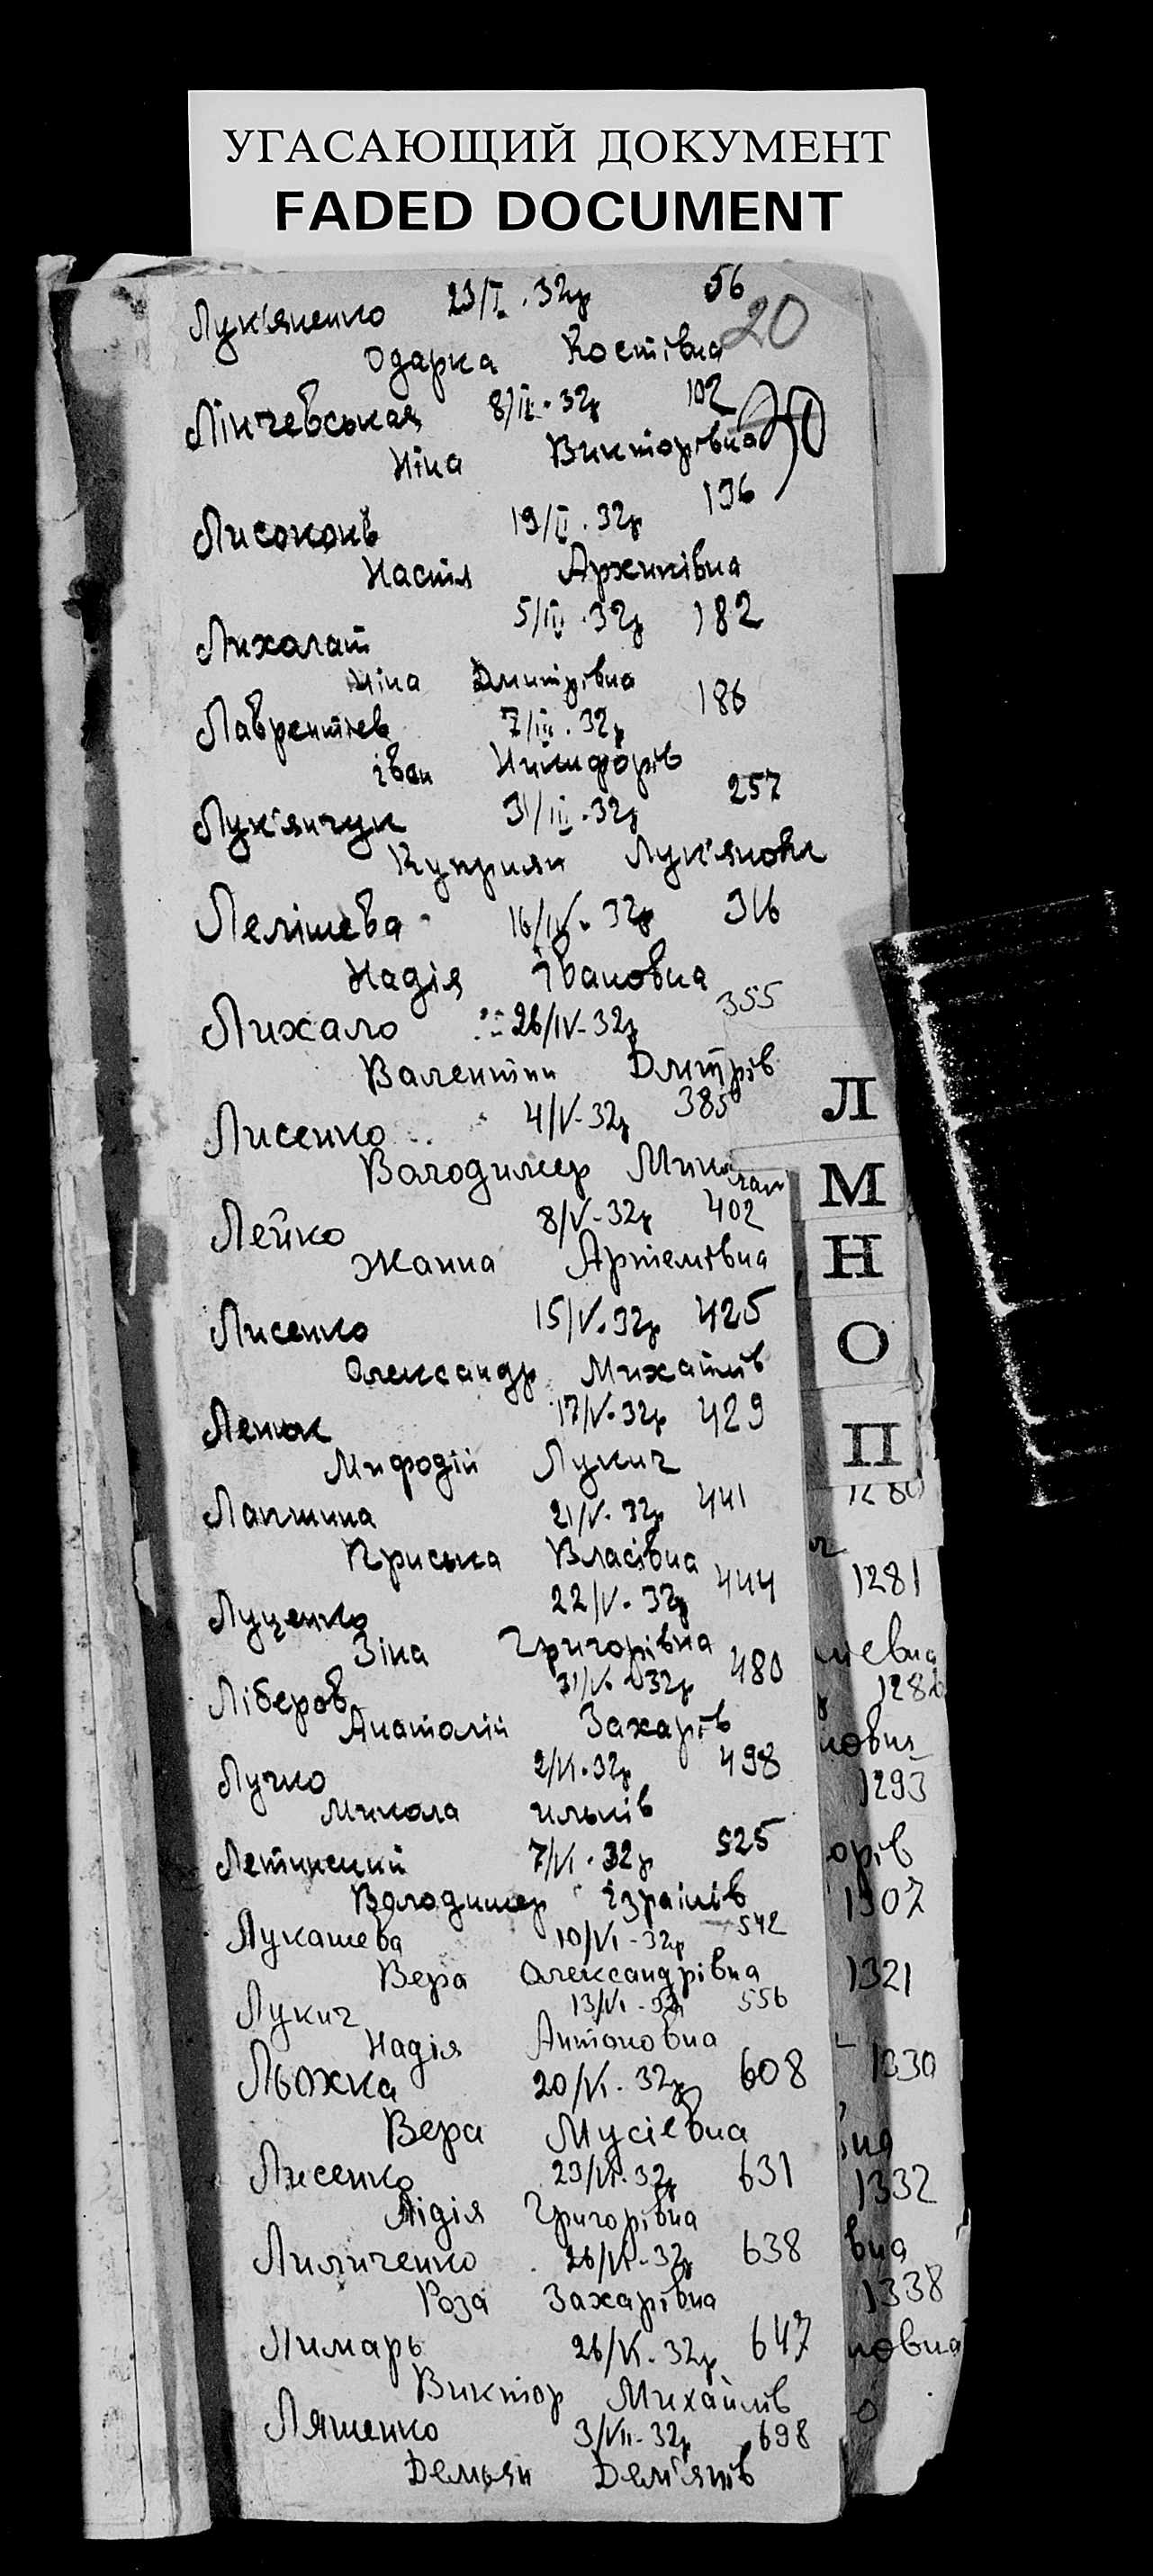 УГАСАЮЩИЙ ДОКУМЕНТ
FADED DOCUMENT
Лук'яненко 23/I.32р 56
20
Одарка Костівна
Лінчевськая 8/II.32р 102
Ніна Викторівна
Лисоконь 19/II.32р 136
Настя
5/III.32р 182
Лихолат
Ніна Дмитрівна
Лаврентіев 7/III.32р 186
іван Никифорів
Лук'янчук 31/III.32р 257
Куприян Лук'янов
Лелішева 16/IV.32р 316
Надія Івановна
Лихало 26/IV-32р 355
Валентин Дмитрів
Лисенко 4/V-32р 385
Володимер
Лейко 8/V-32р 402
Жанна Артемівна
Лисенко 15/V.32р 425
Олександр Михайлів
Ленюк 17/V.32р 429
Мифодій Лукич
Лапшина 21/V.32р 441
Приська Власівна
Луценко 22/V.32р 444
Зіна Григорівна
Ліберов 31/V.32р 480
Анатолій Захарів
Лучко 2/VI.32р 498
Микола ильків
Летинский 7/VI.32р 525
Володимер ізраілів
Лукашева 10/VI-32р 542
Вера Олександрівна
Лукич 13/VI-32р 556
Надія Антоновна
Льожка 20/VI.32р 608
Вера Мусіевна
Лисенко 23/VI.32р 631
Лідія Григорівна
Лиличенко 26/VI-32р 638
Роза Захарівна
Лимарь 26/VI-32р 647
Виктор Михайлів
Ляшенко 3/VII-32р 698
Демьян Дем'янів
Л
М
Н
О
П
1280
1281
1293
орів
1307
1321
1330
1332
вна
1338
новна